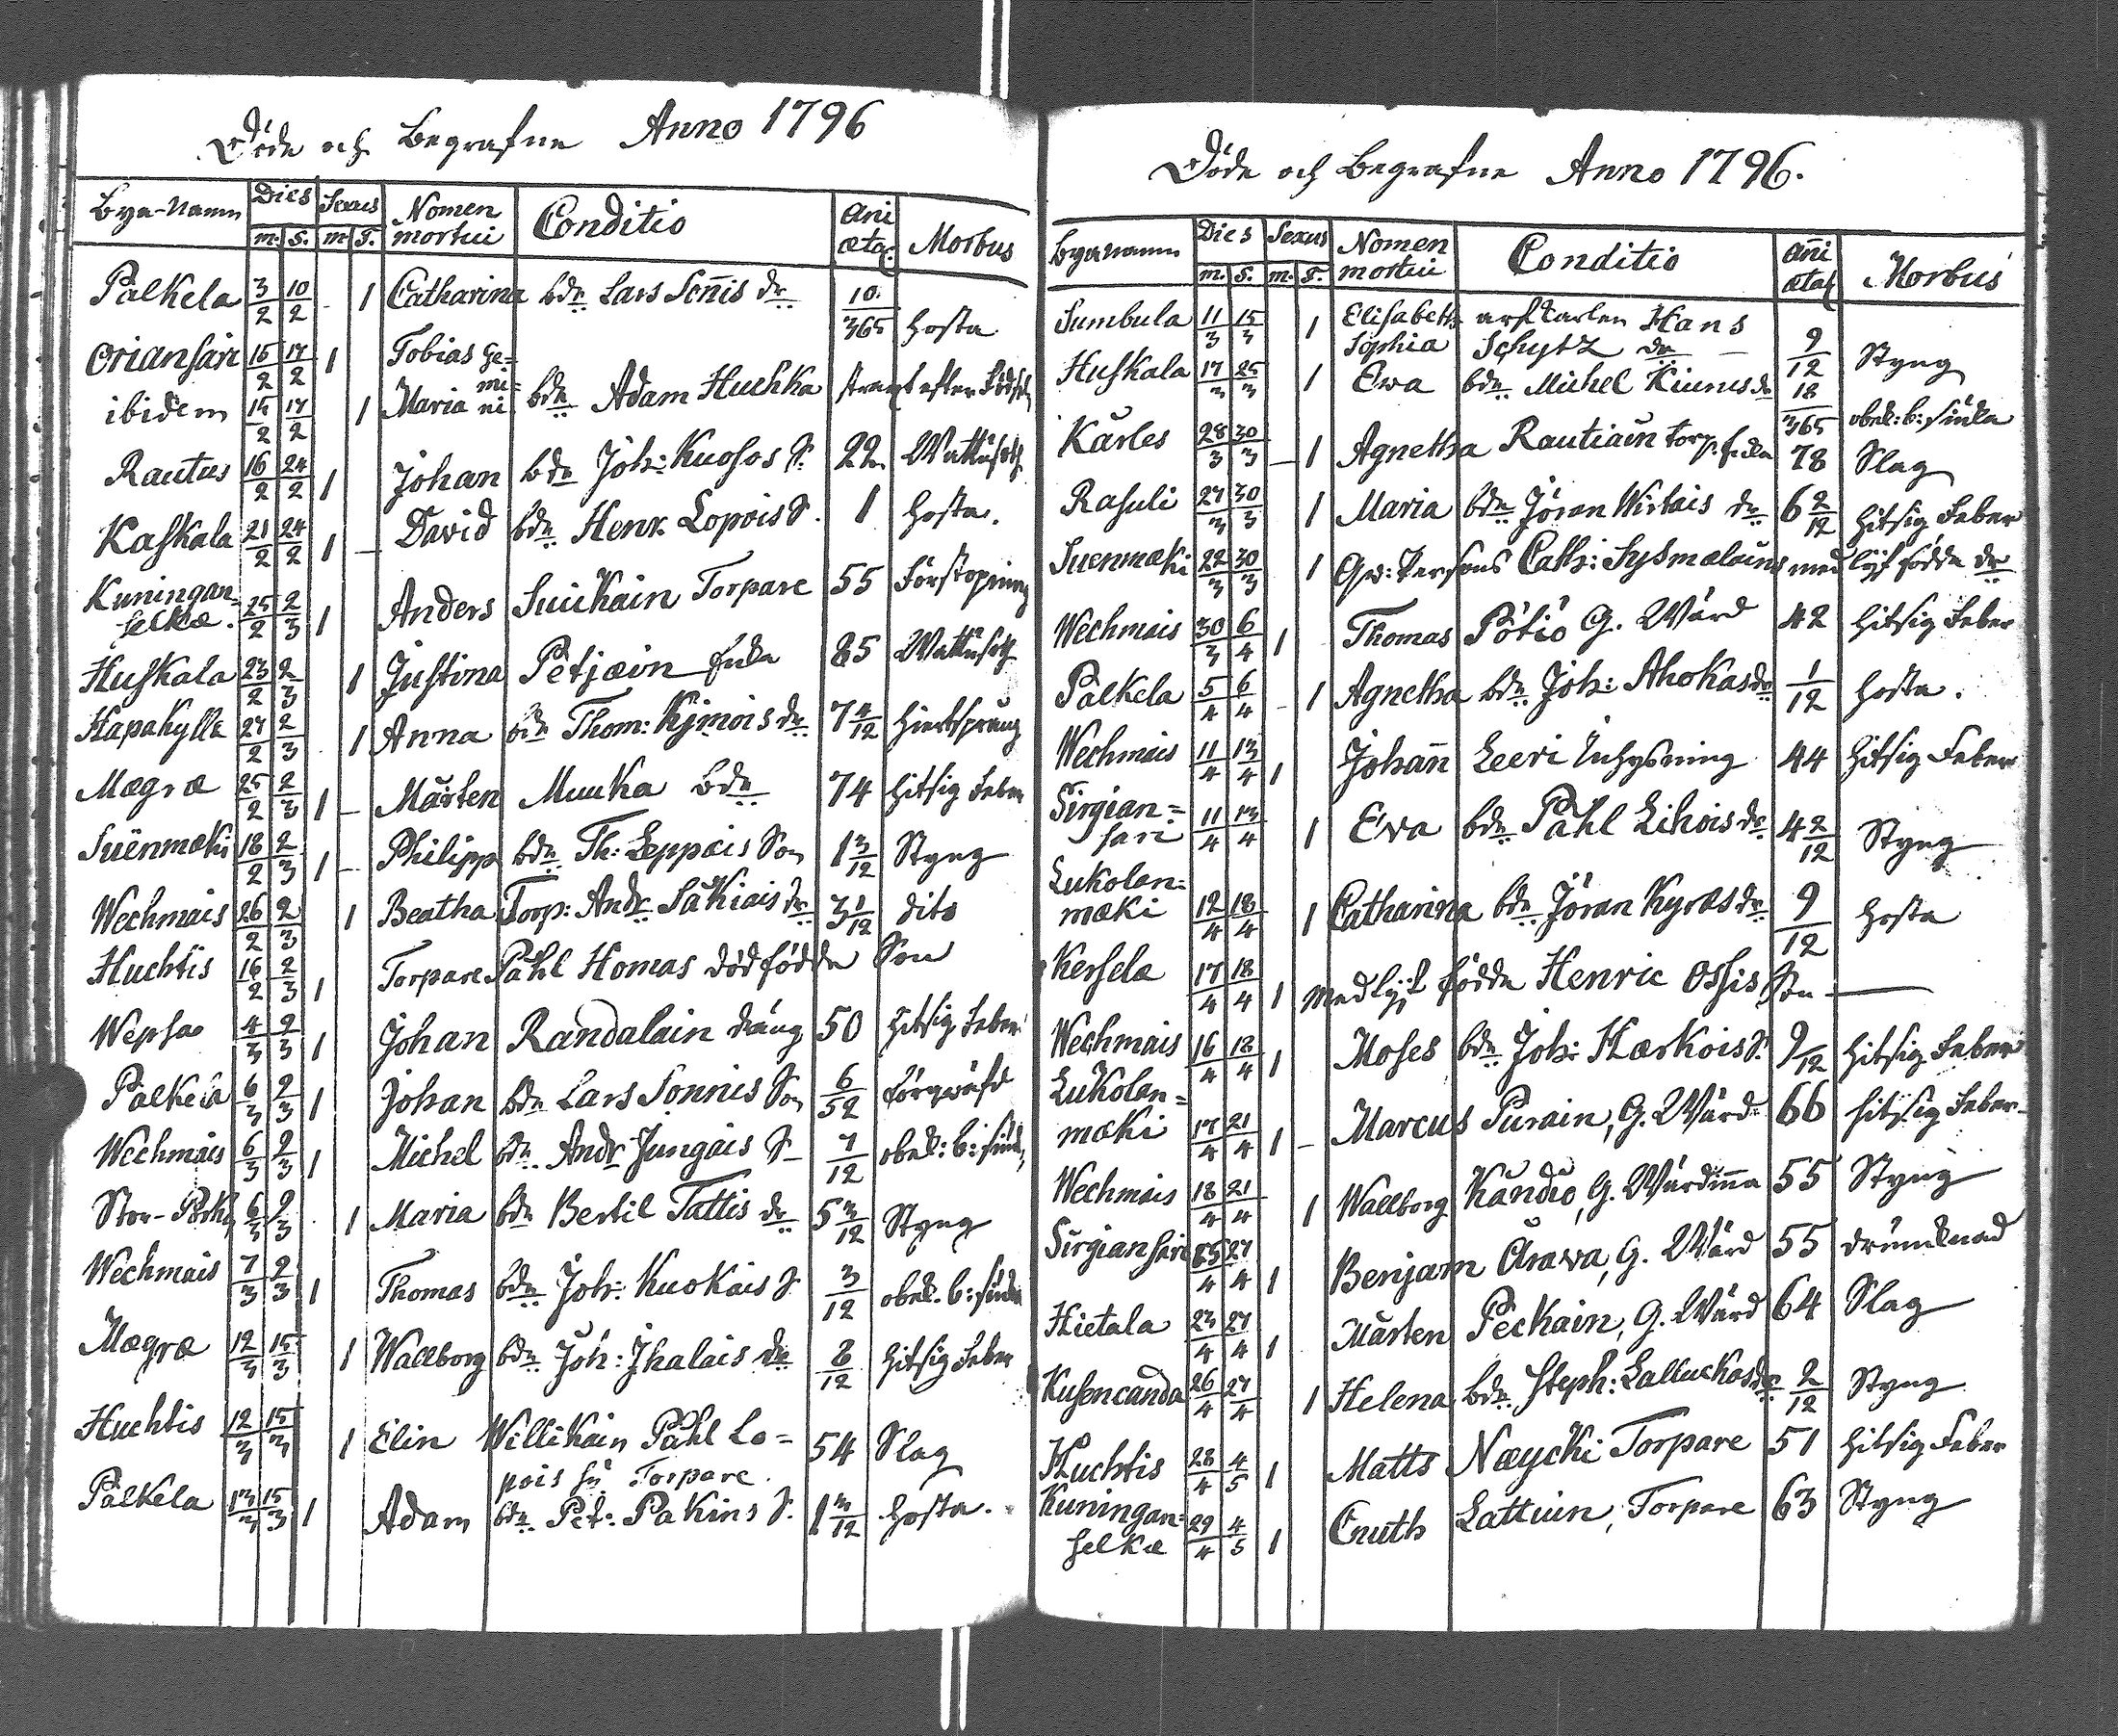 Döde och Begrafne Anno 1796
Bya-Namn Dies Sexus Nomen mortui Conditio Ani ætat. Morbus
m. S. m. F.
Pålkela 3/2 10/2 - 1 Catharina bdn Lars Soñis dr 10/365 hosta
Oriansari 15/2 17/2 1 Tobias Ge=
mi=
ibidem 15/2 17/2 1 Maria ni bdn Adam Huchka straxt efter Födseln
Rautus 16/2 24/2 1 Johan bdn Joh: Kuosos S. 22 Wattusot
Kaskala 21/2 24/2 1 - David bdn Henr. Lopois S. 1 hosta.
Kuningan=
selkæ. 25/2 2/3 1 Anders Suikain Torpare 55 Förstopning
Huskala 23/2 2/3 1 Justina Petjæin Enka 85 Wattusot
Hapakylle 27/2 2/3 1 Anna bdn Thom: Kjmois dr 7 4/12 hiertsprång
Mægræ 25/2 2/3 1 - Mårten Muuka bdn 74 hitsig Feber
Suenmæki 18/2 2/3 1 - Philipp bdn Th: Leppæis Son 1 3/12 Styng
Wechmais 26/2 2/3 1 Beatha Torp: Andr. Säkiais dr 3 1/12 dito
Huchtis 16/2 2/3 1 Torpare Påhl Homas dödfödde Son
Wepsa 4/3 2/3 1 Johan Randalain dräng 50 hitsig Feber
Pålkela 6/3 2/3 1 Johan bdn Lars Sonnis Son 6/52 förqväfd
Wechmais 6/3 2/3 1 Michel bdn Andr Jungais S 7/12 obek: b: siuk
Stor-Pork 6/3 2/3 1 Maria bdn Bertil Tattis dr 5 3/12 Styng
Wechmais 7/3 2/3 1 Thomas bdn Joh: Kuokais S. 3/12 obek. b: siuka
Mægræ 12/3 15/3 1 Wallborg bdn Joh: Jhalais dr 8/12 hitsig Feber
Huchtis 12/3 15/3 1 Elin Willikain Påhl Lo= 54 Slag
pois hu Torpare.
Pålkela 13/3 15/3 1 Adam bdn Pet: Pakins S. 1 3/12 hosta.
Döde och Begrafne Anno 1796.
Bya namn Dies Sexus Nomen mortui Conditio Añi ætat Morbus
m. S. m. F.
Sumbula 11/3 15/3 1 Elisabeth arfkarlen Hans
Sophia Schytz dr - 9/12 Styng
Huskala 17/3 25/3 1 Ewa bdn Michel Kiunus dr 18/365 obek: b: siuka
Kårles 28/3 30/3 - 1 Agnetha Rautiain torp. Enka 78 Slag
Rasuli 27/3 30/3 1 Maria bdn Jöran Wirtais dr 6 2/12 hitsig Feber
Suenmæki 22/3 30/3 1 Qw: Persons Cath: Sysmælains med lijf födda dr
Wechmais 30/3 6/4 1 Thomas Pötiö G. Wärd 42 hitsig Feber
Pålkela 5/4 6/4 - 1 Agnetha bdn Joh: Ahokas dr 1/12 hosta.
Wechmais 11/4 13/4 1 Johañ Leeri Inhysning 44 hitsig Feber
Sirgian=
sari 11/4 13/4 1 Ewa bdn Påhl Lihois dr 4 2/12 Styng
Lukolan=
mæki 12/4 18/4 1 Catharina bdn Jöran Kyræs dr 9/12 hosta
Kersela 17/4 18/4 1 med lijf födde Henric Ossis Son
Wechmais 16/4 18/4 1 Moses bdn Joh: Hærkois S. 9/12 hitsig Feber
Lukolan=
mæki 17/4 21/4 1 - Marcus Purain, G. Wärd 66 hitsig Feber
Wechmais 18/4 21/4 1 Wallborg Kandio, G. Wärdiña 55 Styng
Sirgiansari 25/4 27/4 1 Benjam Arawa, G. Wärd 55 drunknad
Hietala 23/4 27/4 1 Mårten Peckain, G. Wärd 64 Slag
Kusencanda 26/4 27/4 1 Helena bdn Steph: Lalluckas dr 2/12 Styng
Huchtis 28/4 4/5 1 Matts Næycki Torpare 51 hitsig Feber
Kuningan=
selkæ 29/4 4/5 1 Cnuth Lattiun, Torpare 63 Styng